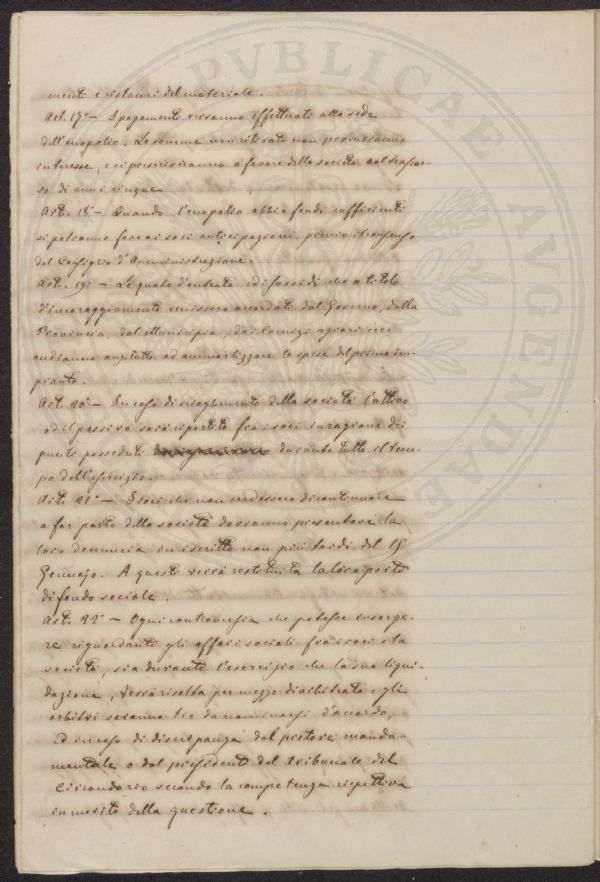 menti e ristauri del materiale.
Art. 17° — I pagamenti verranno effettuati alla sede
dell'enopolio. Le somme non ritirate non produrranno
interesse, e si prescriveranno a favore della società col trascor-
so di anni cinque
Art. 18° — Quando l'enopolio abbia fondi sufficienti
si potranno fare ai soci anticipazioni, previo il consenso
del Consiglio d'Amministrazione.
Art. 19° — Le quote d'entrata ed i sussidi che a titolo
d'incoraggiamento venissero accordati dal Governo, dalla
Provincia, dal Municipio, dai Comizi agrari ecc.
andranno anzitutto ad ammortizzare le spese del primo im-
pianto.
Art. 20° — In caso di scioglimento della società l'attivo
ed il passivo sarà ripartito fra i soci in ragione dei
punti posseduti durante tutto il tem-
po dell'esercizio.
Art. 21° — I soci che non credessero di continuare
a far parte della società dovranno presentare la
loro denuncia in iscritto non più tardi del 15
Gennajo. A questi verrà restituita la loro parte
di fondo sociale.
Art. 22° — Ogni controversia che potesse insorge-
re riguardante gli affari sociali fra i soci e la
società, sia durante l'esercizio che la sua liqui-
dazione, verrà risolta per mezzo di arbitrato e gli
arbitri saranno tre da nominarsi d'accordo,
ed in caso di discrepanza dal pretore manda-
mentale o dal presidente del tribunale del
Circondario secondo la competenza rispettiva
in merito della questione.
PVBLICAE
AVGENDAE